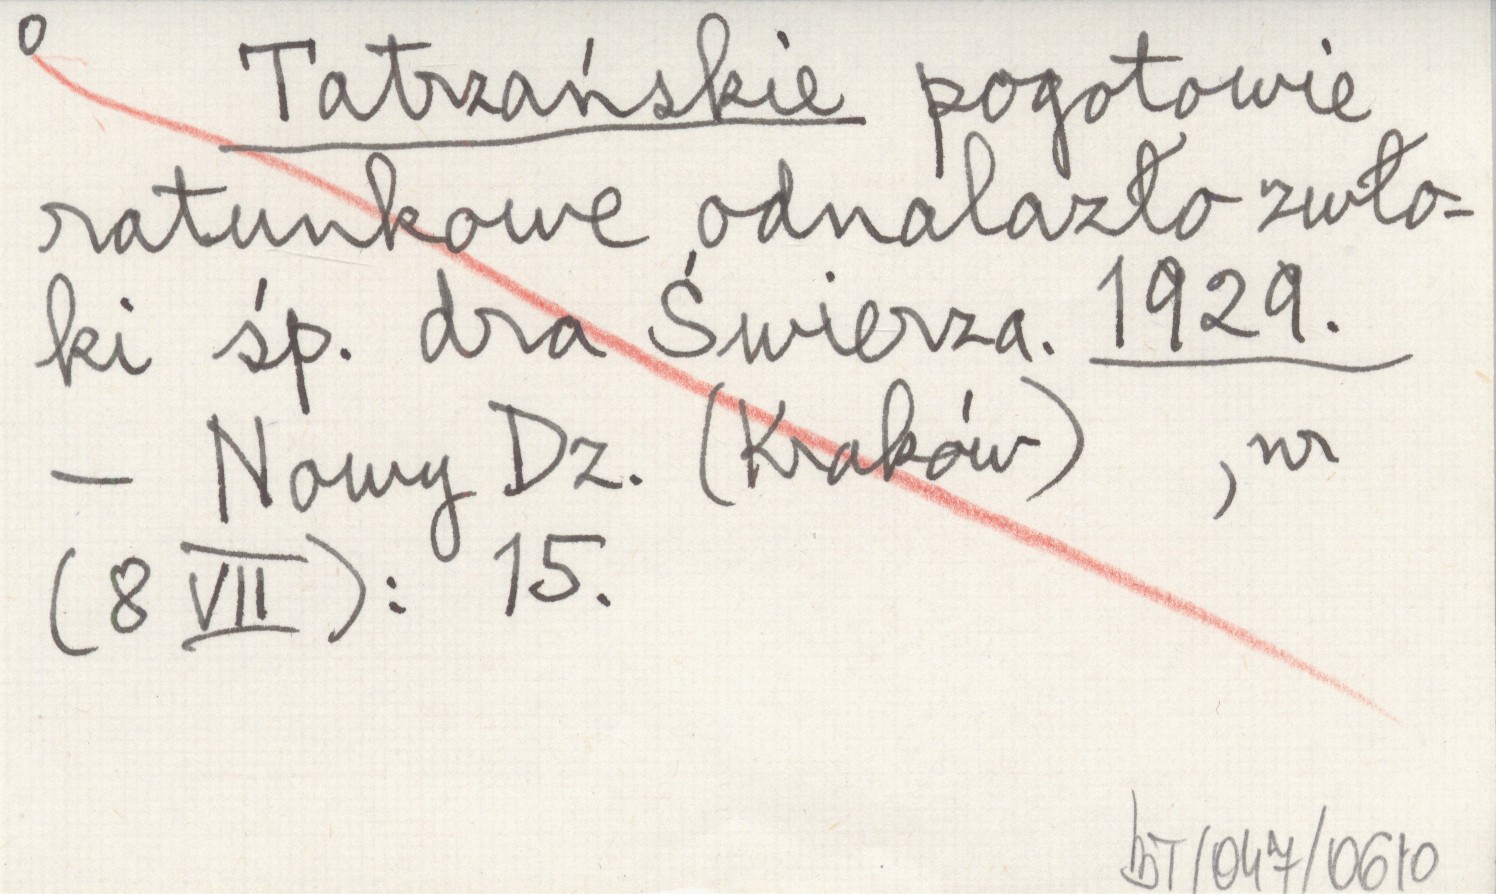 o Tatrzańskie pogotowie
ratunkowe odnalazło zwło=
ki śp. dra Świerza. 1929.
— Nowy Dz. (Kraków) , nr
(8 VII): 15.
BT/047/0610